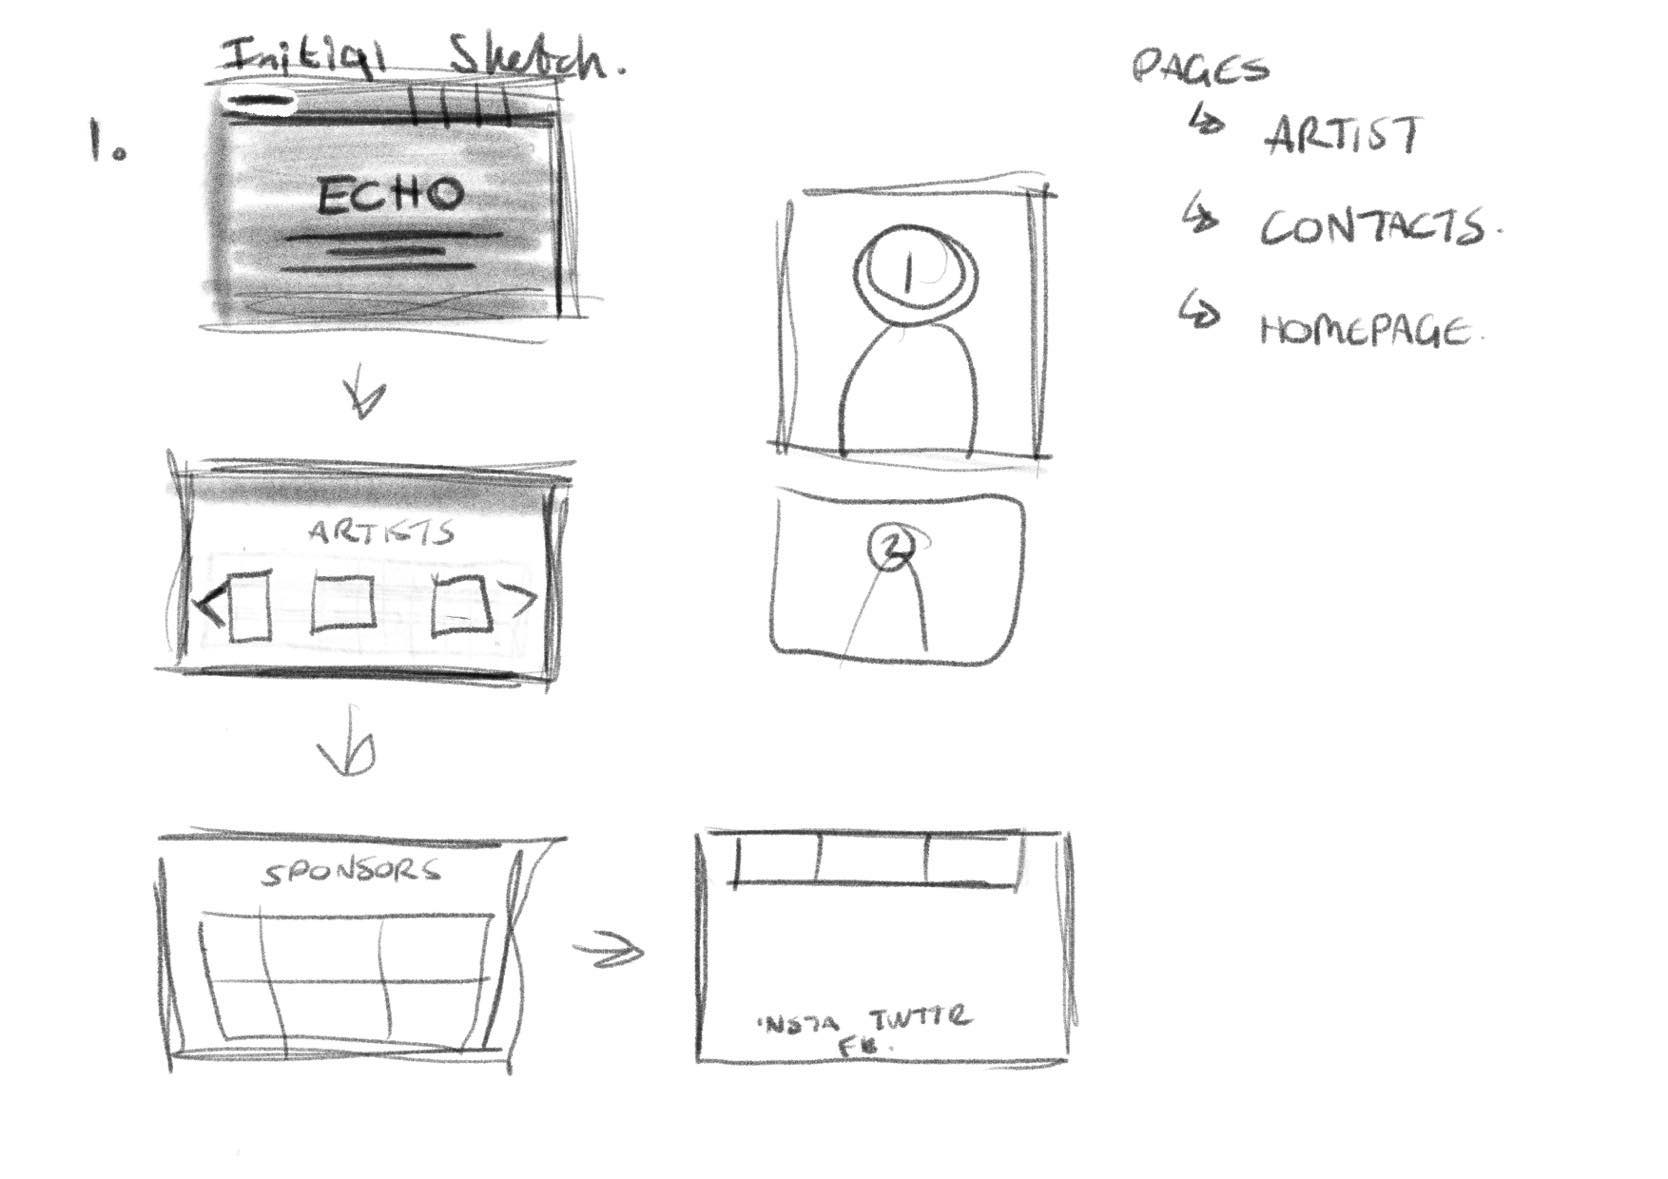 Initial Sketch.
1.
ECHO
ARTISTS
SPONSORS
1
2
INSTA TWTTR
FB.
PAGES
↳ ARTIST
↳ CONTACTS.
↳ HOMEPAGE.